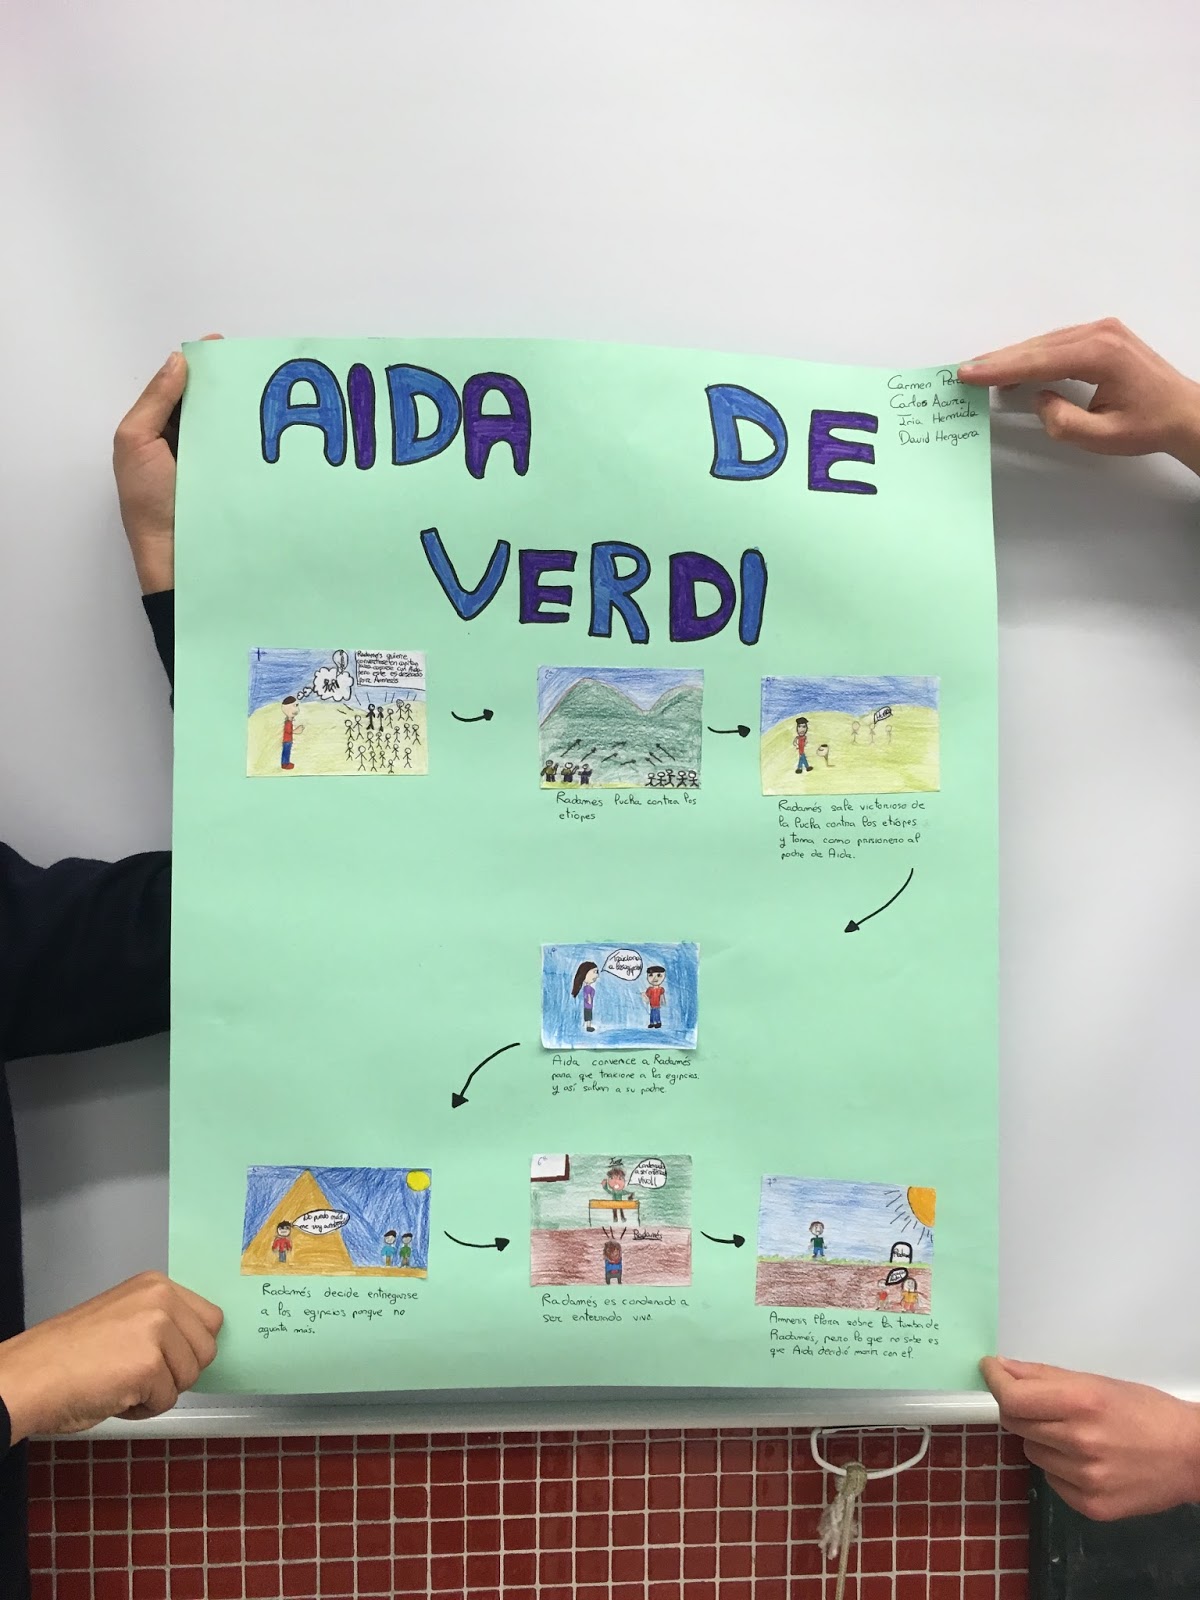 AIDA DE
VERDI
Carmen
Carlos
Iria Hermida
David Herguera
1º
Radamés quiere
convertirse en capitán
para casarse con Aida
pero este es deseado
por Amneris
2º
Radames lucha contra los
etiopes
Radamés sale victorioso de
la lucha contra los etiopes
y toma como prisionero al
padre de Aida.
4º
Traiciona
a
Aida convence a Radamés
para que traicione a los egipcios
y así salvar a su padre.
No puedo más,
me voy a
Radamés decide entregarse
a los egipcios porque no
aguanta más.
6º
Juez
Condenado
a ser enterrado
vivo!!
Radamés
Radamés es condenado a
ser enterrado vivo.
7º
Amneris llora sobre la tumba de
Radamés, pero lo que no sabe es
que Aida decidió morir con el.